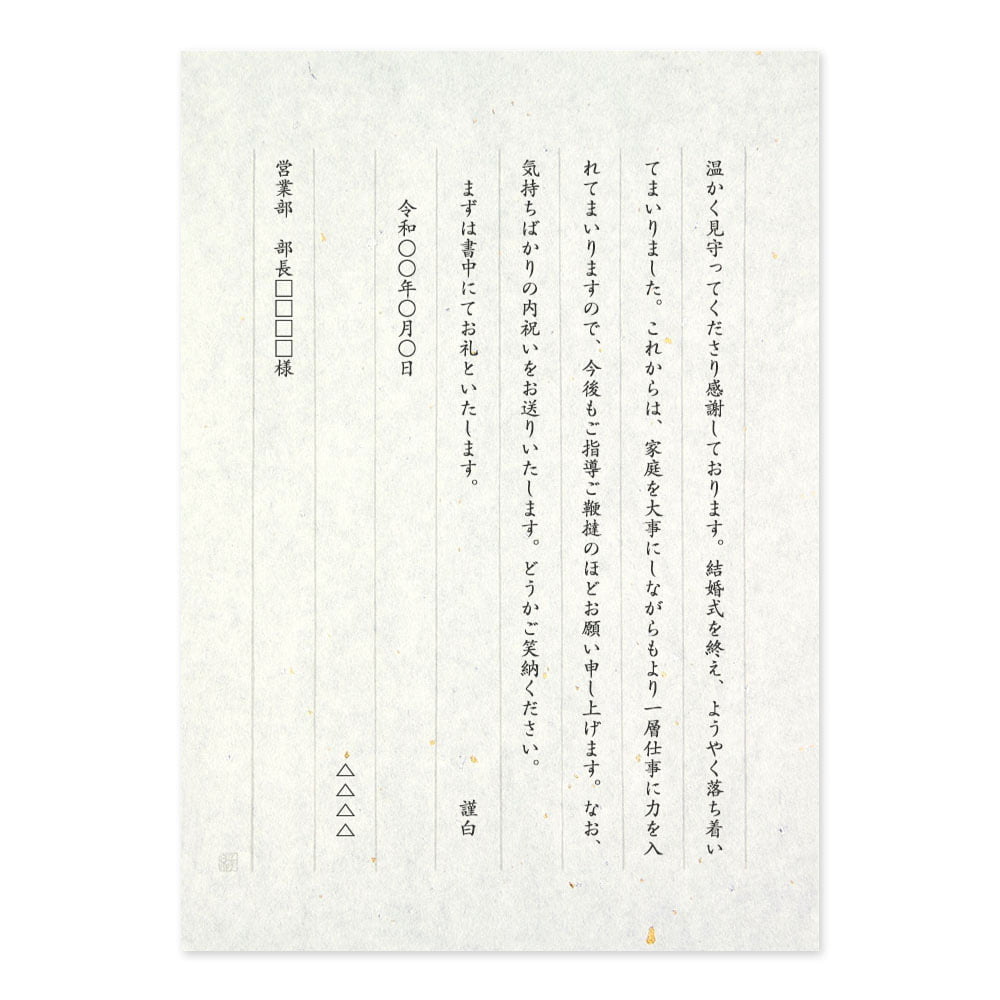 温かく見守ってくださり感謝しております。結婚式を終え、ようやく落ち着い
てまいりました。これからは、家庭を大事にしながらもより一層仕事に力を入
れてまいりますので、今後もご指導ご鞭撻のほどお願い申し上げます。なお、
気持ちばかりの内祝いをお送りいたします。どうかご笑納ください。
まずは書中にてお礼といたします。　謹白
令和〇〇年〇月〇日
△△△△
営業部　部長□□□□様